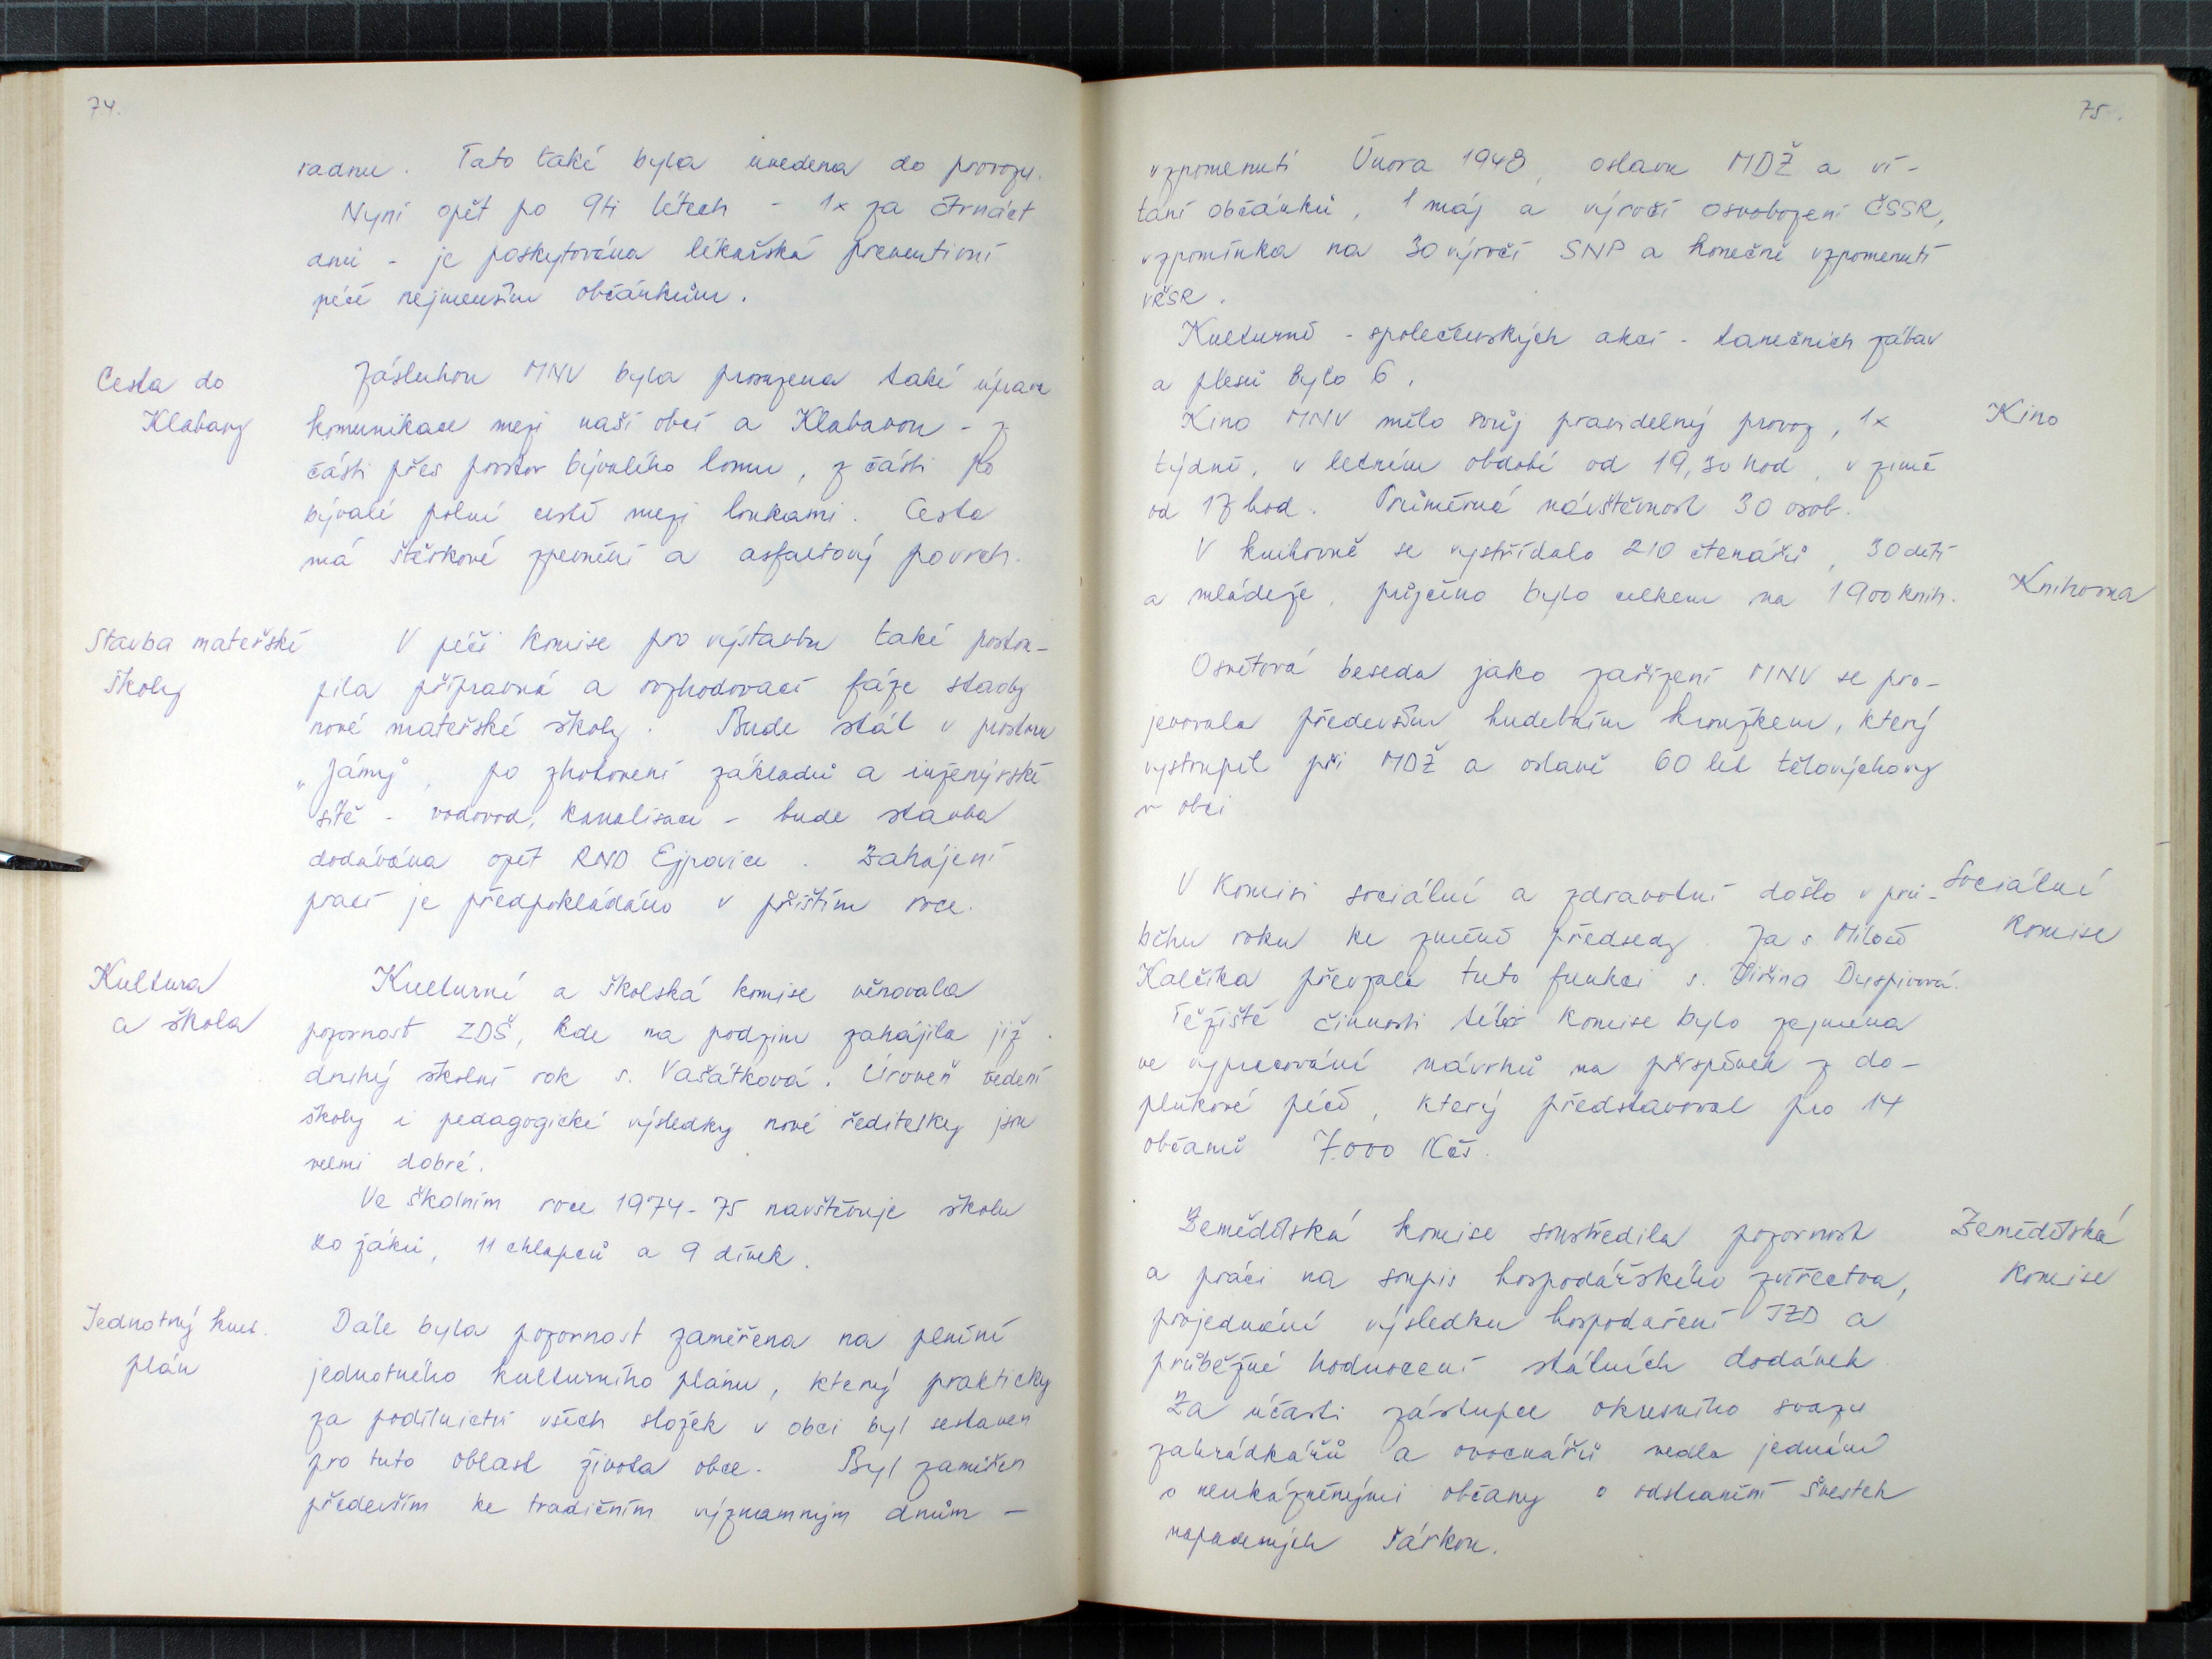 74.
radnu. Tato také byla uvedena do provozu.
Nyní opět po 9ti létech - 1x za čtrnáct
dnů - je poskytována lékařská preventivní
péče nejmenším občánkům.
Cesta do
Klabavy
Zásluhou MNV byla prosazena také úprava
komunikace mezi naší obcí a Klabavou - z
části přes prostor bývalého lomu, z části po
bývalé polní cestě mezi loukami. Cesta
má štěrkové zpevnění a asfaltový povrch.
Stavba mateřské
školy
V péči komise pro výstavbu také postou-
pila přípravná a rozhodovací fáze stavby
nové mateřské školy. Bude stát v prostoru
„Jámy", po zhotovení základů a inženýrské
sítě - vodovod, kanalisace - bude stavba
dodávána opět RND Ejpovice. Zahájení
prací je předpokládáno v příštím roce.
Kultura
a škola
Kulturní a školská komise věnovala
pozornost ZDŠ, kde na podzim zahájila již
druhý školní rok s. Vašátková. Úroveň vedení
školy i pedagogické výsledky nové ředitelky jsou
velmi dobré.
Ve školním roce 1974-75 navštěvuje školu
20 žáků, 11 chlapců a 9 dívek.
Jednotný kult.
plán
Dále byla pozornost zaměřena na plnění
jednotného kulturního plánu, který prakticky
za podílnictví všech složek v obci byl sestaven
pro tuto oblast života obce. Byl zaměřen
především ke tradičním významným dnům -
75.
vzpomenutí Února 1948, oslavu MDŽ a ví-
tání občánků, 1 máj a výročí osvobození ČSSR,
vzpomínka na 30 výročí SNP a konečně vzpomenutí
VŘSR.
Kulturně - společenských akcí - tanečních zábav
a plesů bylo 6.
Kino MNV mělo svůj pravidelný provoz, 1x
Kino
týdně, v letním období od 19,30 hod, v zimě
od 17 hod. Průměrná návštěvnost 30 osob.
V knihovně se vystřídalo 210 čtenářů, 30 dětí
a mládeže, půjčeno bylo celkem na 1900 knih.
Knihovna
Osvětová beseda jako zařízení MNV se pro-
jevovala především hudebním kroužkem, který
vystoupil při MDŽ a oslavě 60 let tělovýchovy
v obci
V komisi sociální a zdravotní došlo v prů-
Sociální
komise
běhu roku ke změně předsedy. Za s Miloně
Kalčíka převzala tuto funkci s. Jiřina Duspivová.
Těžiště činnosti této komise bylo zejména
ve vypracování návrhů na příspěvek z do-
plňkové péče, který představoval pro 14
občanů 7.000 Kčs.
Zemědělská komise soustředila pozornost
Zemědělská
komise
a práci na soupis hospodářského zvířectva,
projednání výsledku hospodaření JZD a
průběžné hodnocení státních dodávek
Za účasti zástupce okresního svazu
zahrádkářů a ovocnářů vedla jednání
s neukázněnými občany o odstranění švestek
napadených šárkou.